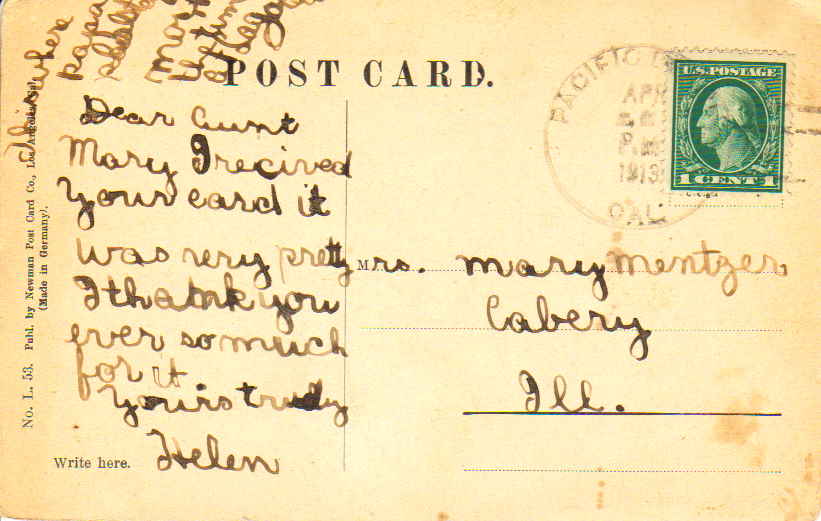 POST CARD.
Dear Aunt
Mary I recived
Your card it
was very pretty
I thank you
ever so much
for it
Yours truly
Helen
Write here.
Mrs. Mary Mentzer
Cabery
Ill.
where
papa
PACIFIC
APR
P.M.
1913
CAL.
U.S. POSTAGE
1 CENT 1
No. L. 53. Publ. by Newman Post Card Co., Los Angeles, Cal.
(Made in Germany).